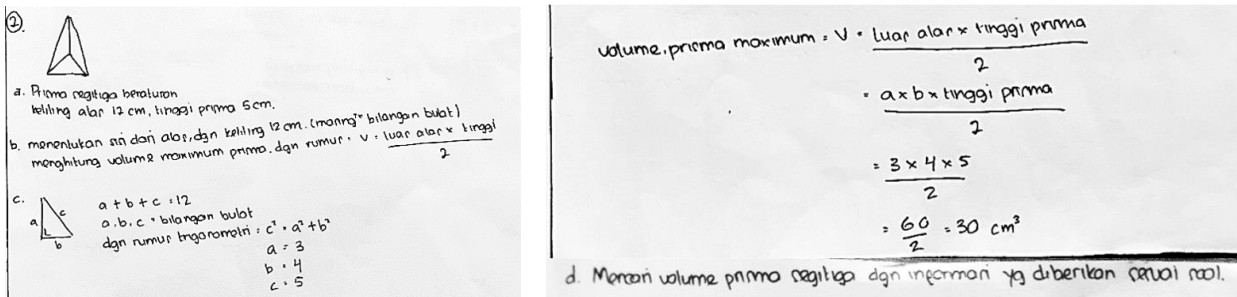 2.
a. Prisma segitiga beraturan
keliling alas 12 cm, tinggi prisma 5 cm.
b. menentukan sisi dari alas, dgn keliling 12 cm. (masing² bilangan bulat)
menghitung volume maximum prisma. dgn rumus = V = luas alas x tinggi
2
c.
a
c
b
a + b + c = 12
a.b.c = bilangan bulat
dgn rumus trigonometri = c² = a² + b²
a = 3
b = 4
c = 5
volume prisma maximum = V = luas alas x tinggi prisma
2
= a x b x tinggi prisma
2
= 3 x 4 x 5
2
= 60 = 30 cm³
2
d. Mencari volume prisma segitiga dgn informasi yg diberikan sesuai soal.